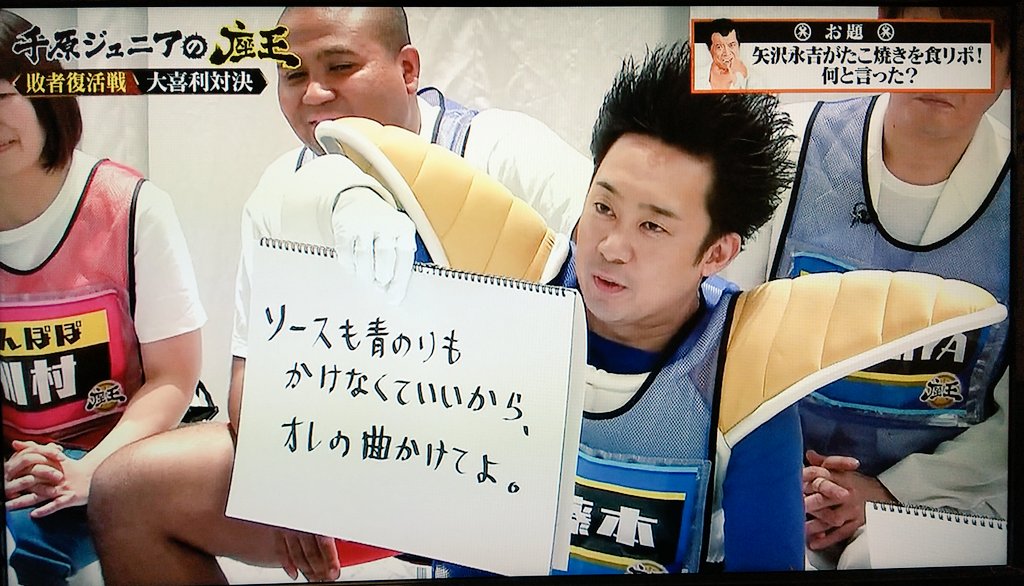 千原ジュニアの座王
敗者復活戦 大喜利対決
お題
矢沢永吉がたこ焼きを食リポ!
何と言った?
ソースも青のりも
かけなくていいから、
オレの曲かけてよ。
んぽぽ
川村
座王
藤本
座王